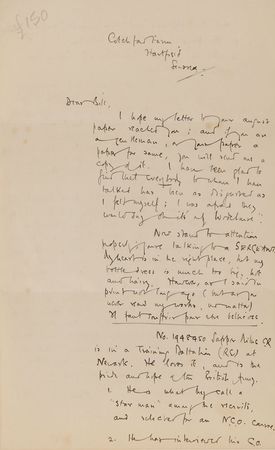 £150
Cotchford Farm
Hartfield
Sussex
Dear Bill,
I hope my letter to your august
paper reached you; and if you are
a gentleman, or your paper a
paper for same, you will send me a
copy of it. I have been glad to
find that everybody to whom I have
talked has been as disgusted as
I felt myself; I was afraid they
would say of it
Now stand to attention
properly: you're talking to a SERGEANT.
My heart is in the right place, but my
battledress is much too big, hot
and hairy. However, as I said in
print not long ago (but as you
never read my works, no matter)
Il faut souffrir pour être
No. 1948950 Sapper Milne CR
is in a Training Battalion (RE) at
Newark. He loves it, and is the
pride and hope of the British Army.
1. He is what they call a
"star man" among the recruits,
and selected for an N.C.O. course.
2. He has interviewed his C.O.